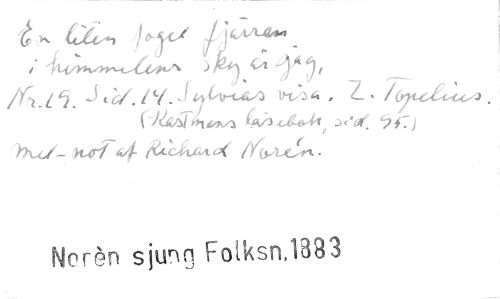 En liten fogel fjärran
i himmelens sky är jag,
Nr. 19. Sid. 14. Sylvias visa. Z. Topelius.
(Kastmans läsebok, sid. 95.)
med not af Richard Norén.
Norèn sjung Folksn. 1883